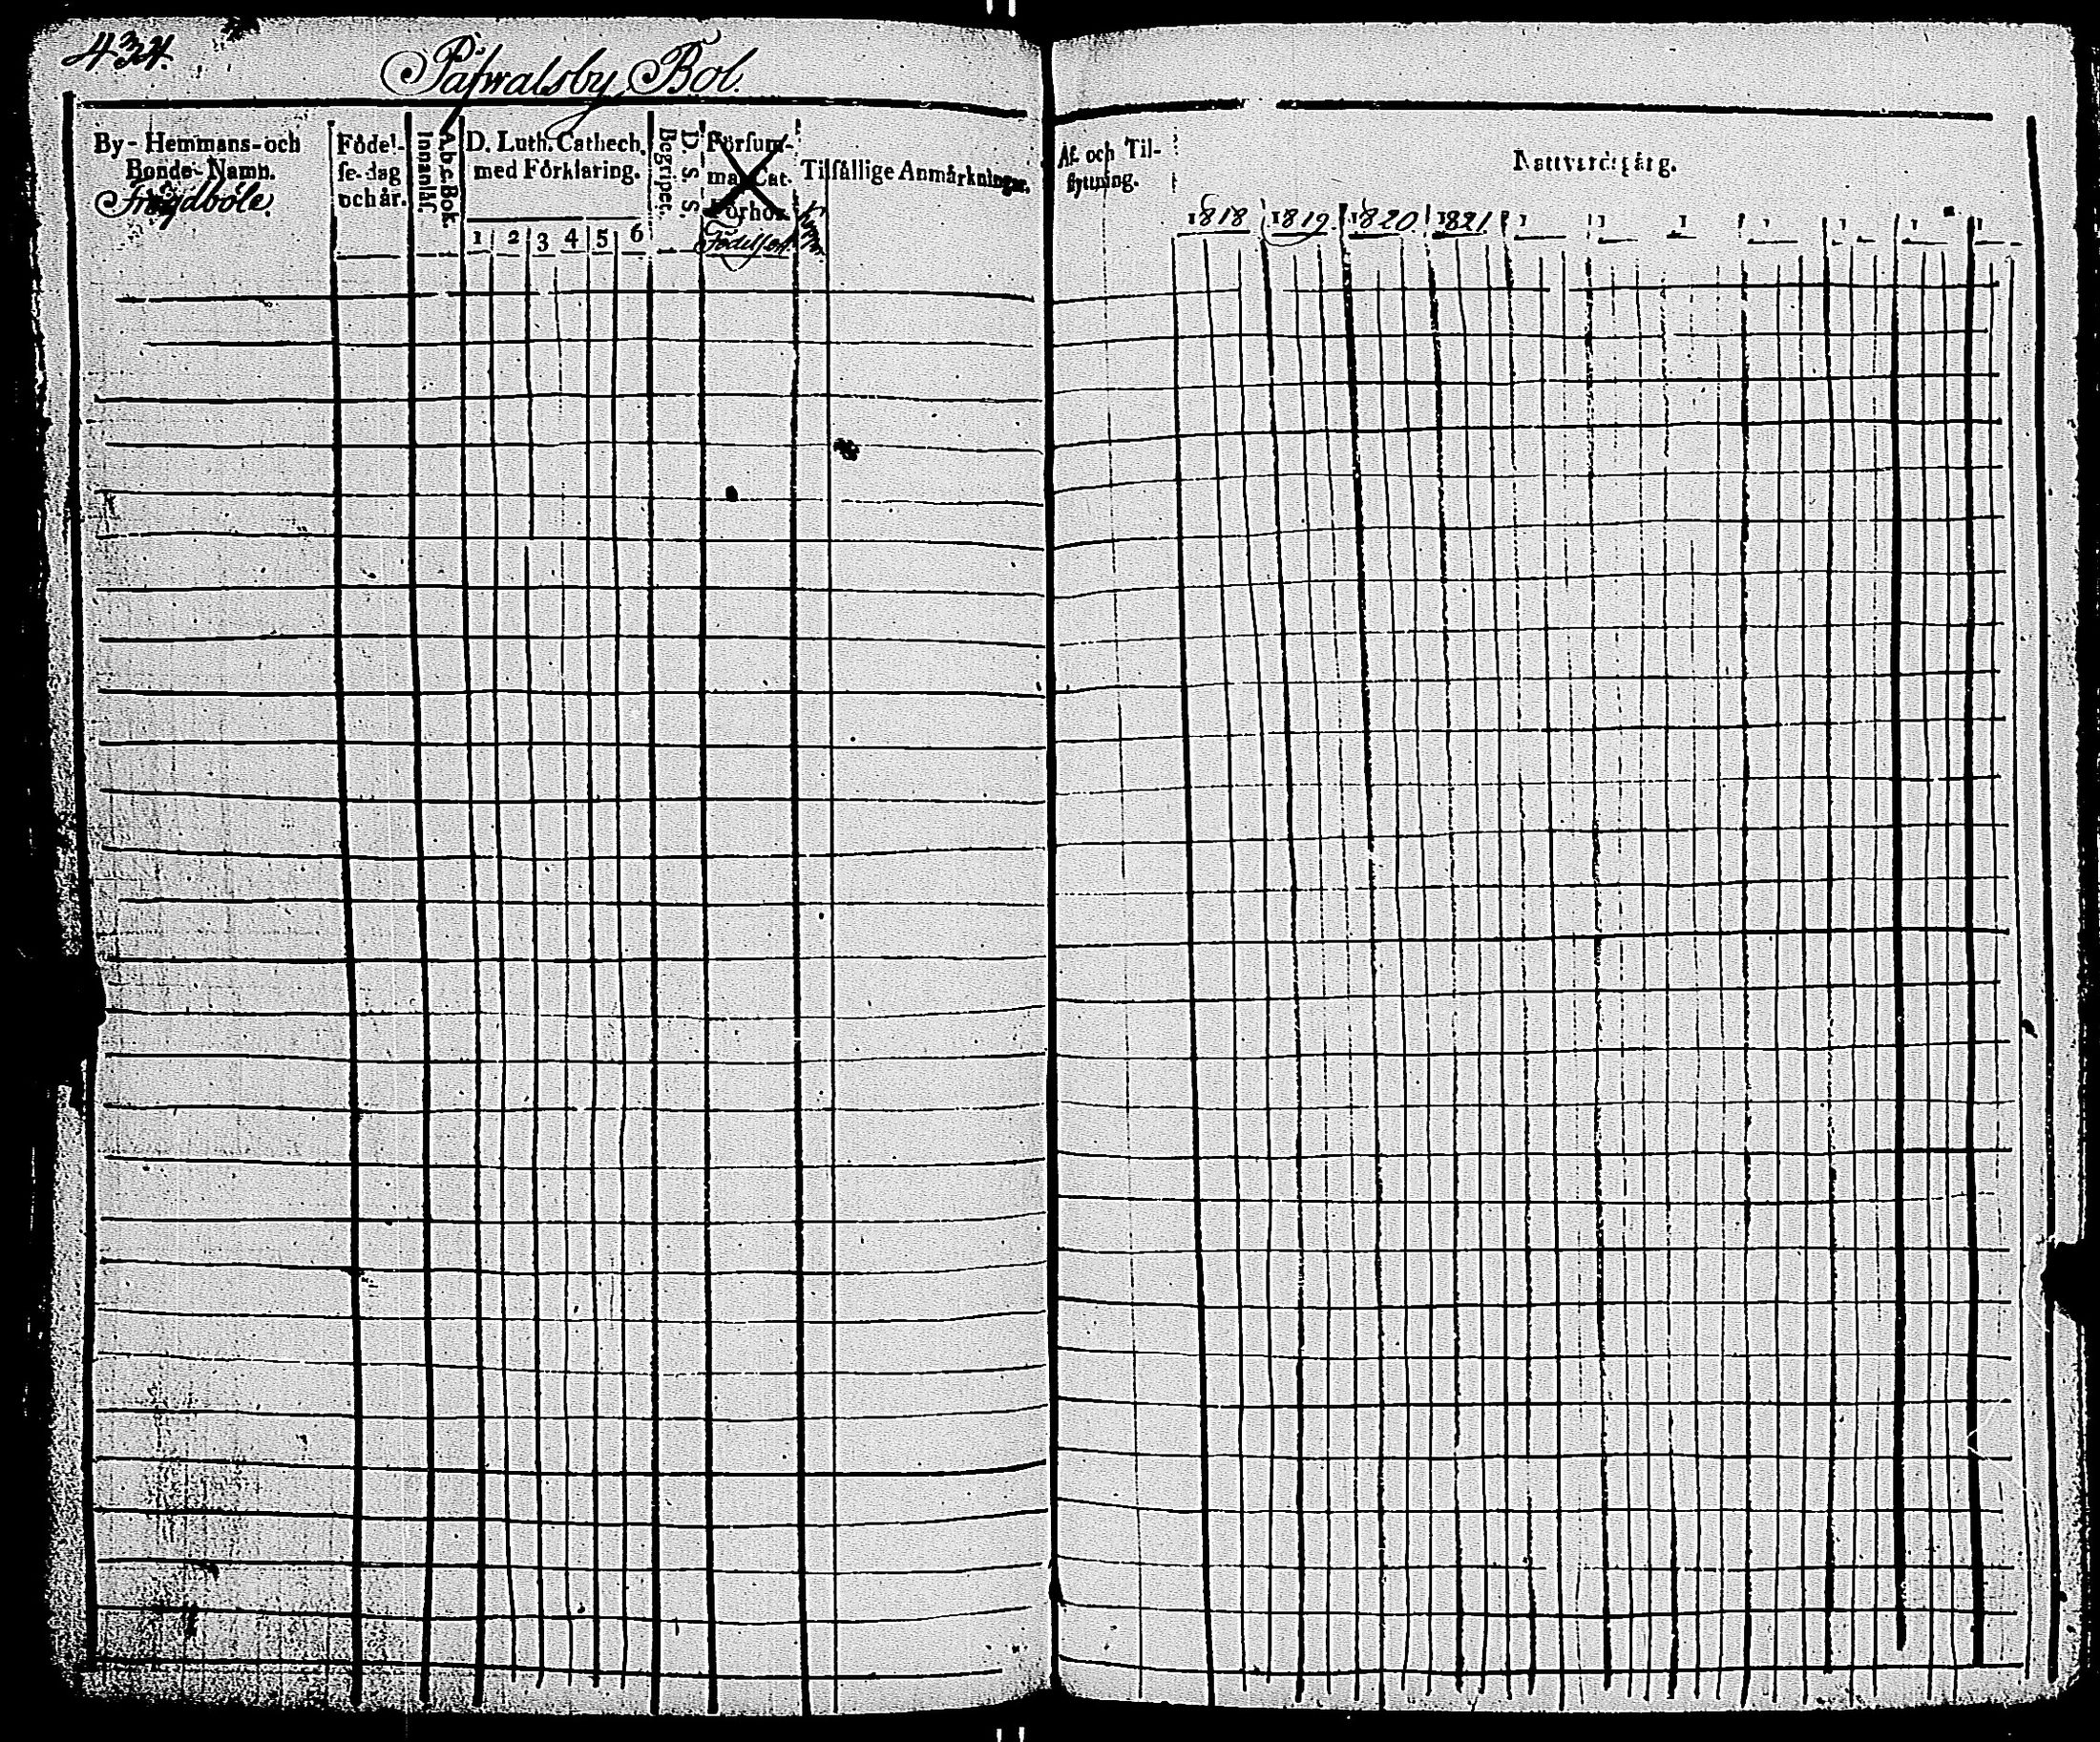 434.
Påfwalsby Bol.
By-Hemmans-och
Bonde-Namn.
Frögdböle.
Födel-
se-dag
och år.
A.b.c. Bok.
Innanläs.
D. Luth. Cathech.
med Förklaring.
1 2 3 4 5 6
D. S. S.
Begripet.
Försum-
ma Cat-
Förhör.
Födelseort.
Tilfällige Anmärkningar.
Af- och Til-
flyttning.
Nattvardsgång.
1818 1819. 1820 1821 1 1 1 1 1 1 1